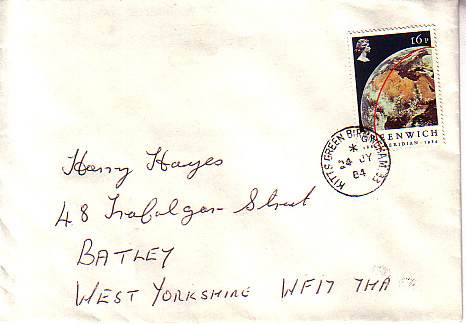 16p
GREENWICH
MERIDIAN · 1884
KITTS GREEN BIRMINGHAM 33
*
24 JY
84
Harry Hayes
48 Trafalgar Street
BATLEY
WEST YORKSHIRE WF17 7HA